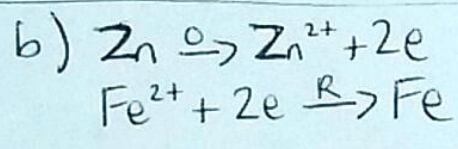 b) Zn O→ Zn²⁺ + 2e
Fe²⁺ + 2e R→ Fe